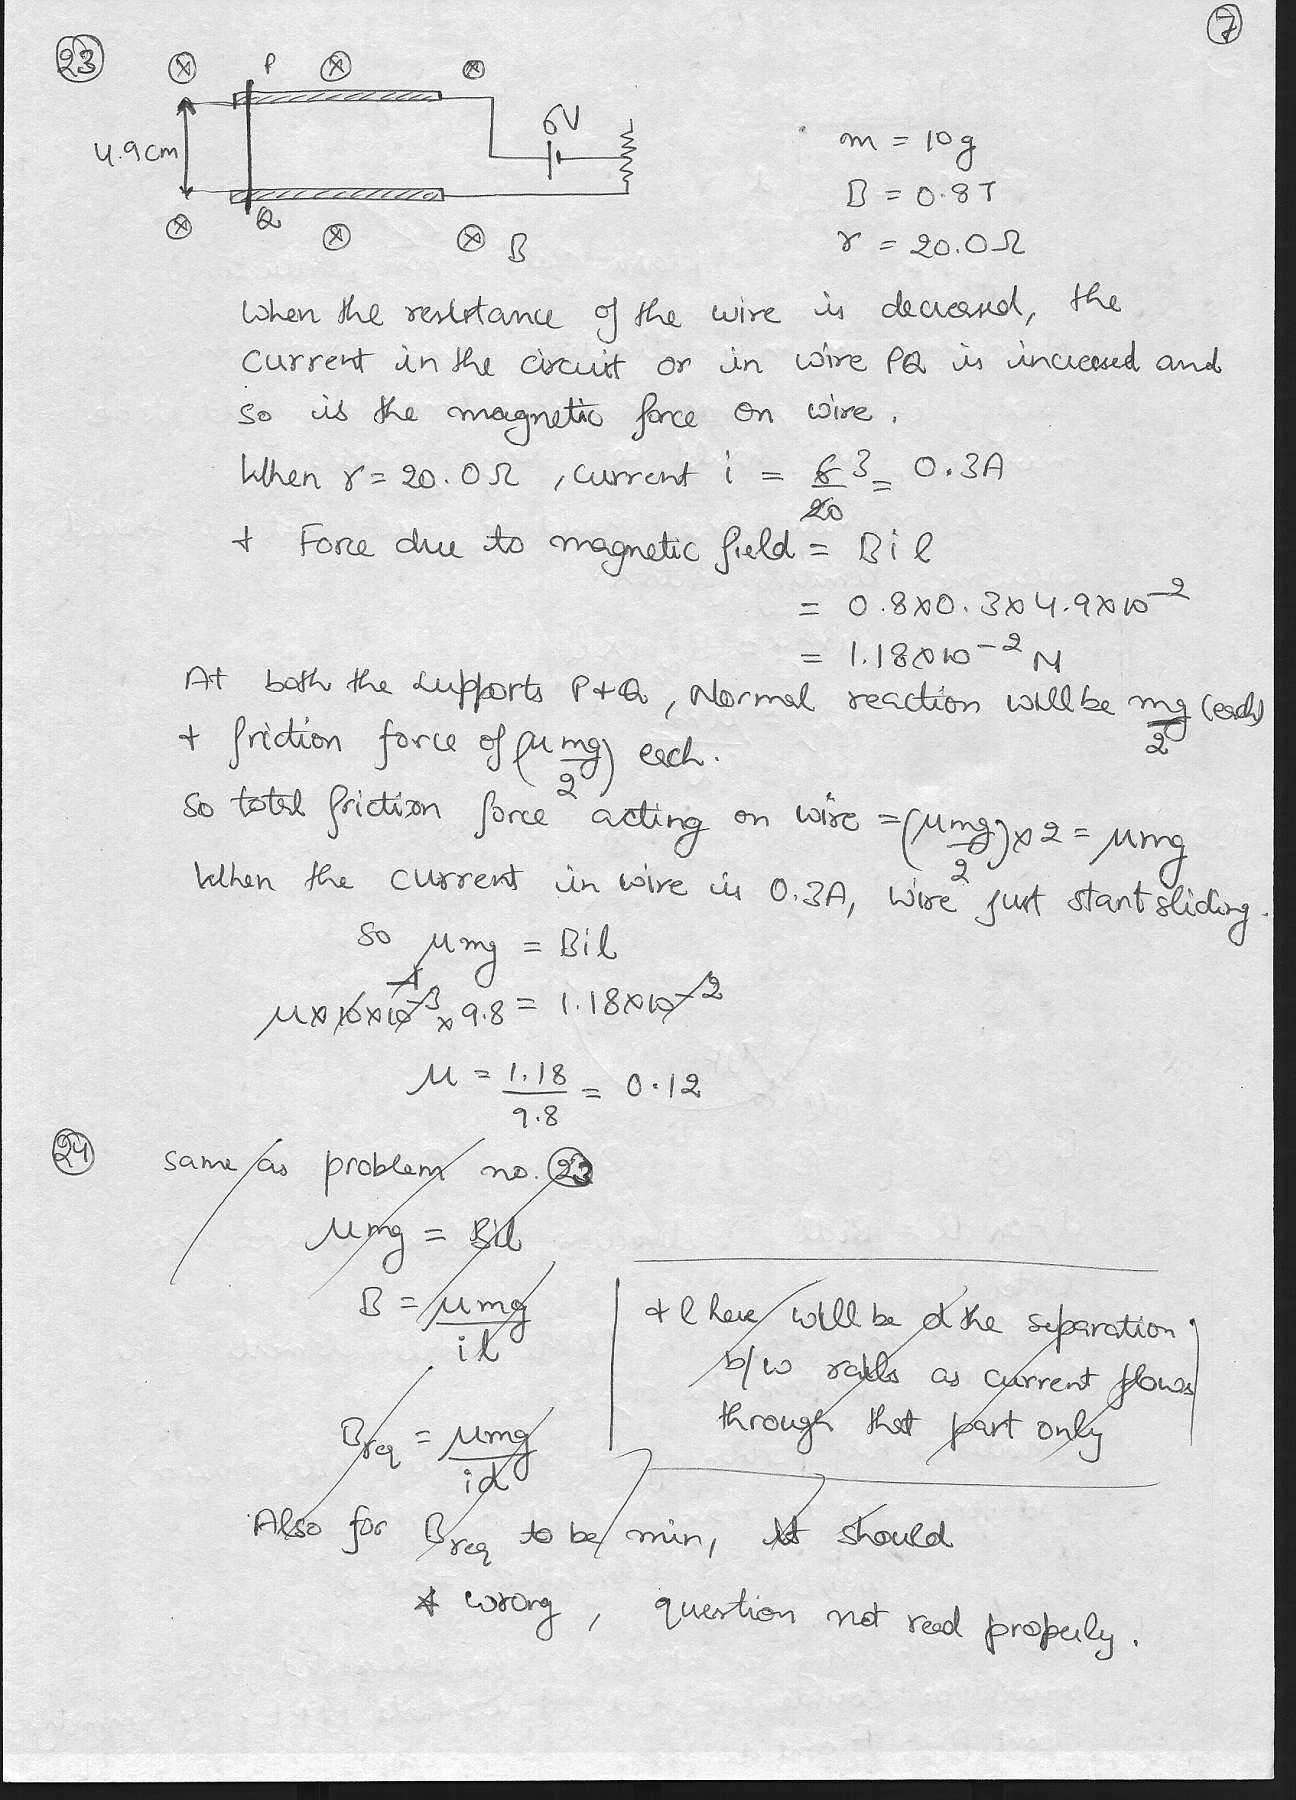 7
23
P
6V
4.9cm
Q
B
m = 10g
B = 0.8T
r = 20.0Ω
When the resistance of the wire is decreased, the
current in the circuit or in wire PQ is increased and
so is the magnetic force on wire.
When r = 20.0Ω, current i = 6/20 3 = 0.3A
+ Force due to magnetic field = Bil
= 0.8×0.3×4.9×10⁻²
= 1.18×10⁻² N
At both the supports P+Q, Normal reaction will be mg/2 (each)
+ friction force of (μmg/2) each.
So total friction force acting on wire = (μmg/2)×2 = μmg
When the current in wire is 0.3A, wire just start sliding.
so μmg = Bil
μ×10×10⁻³×9.8 = 1.18×10⁻²
μ = 1.18/9.8 = 0.12
24
Same as problem no. 23
μmg = Bil
B = μmg/il
+ l here will be d the separation
b/w rails as current flows
through that part only
Breq = μmg/id
Also for Breq to be min, it should
* wrong, question not read properly.